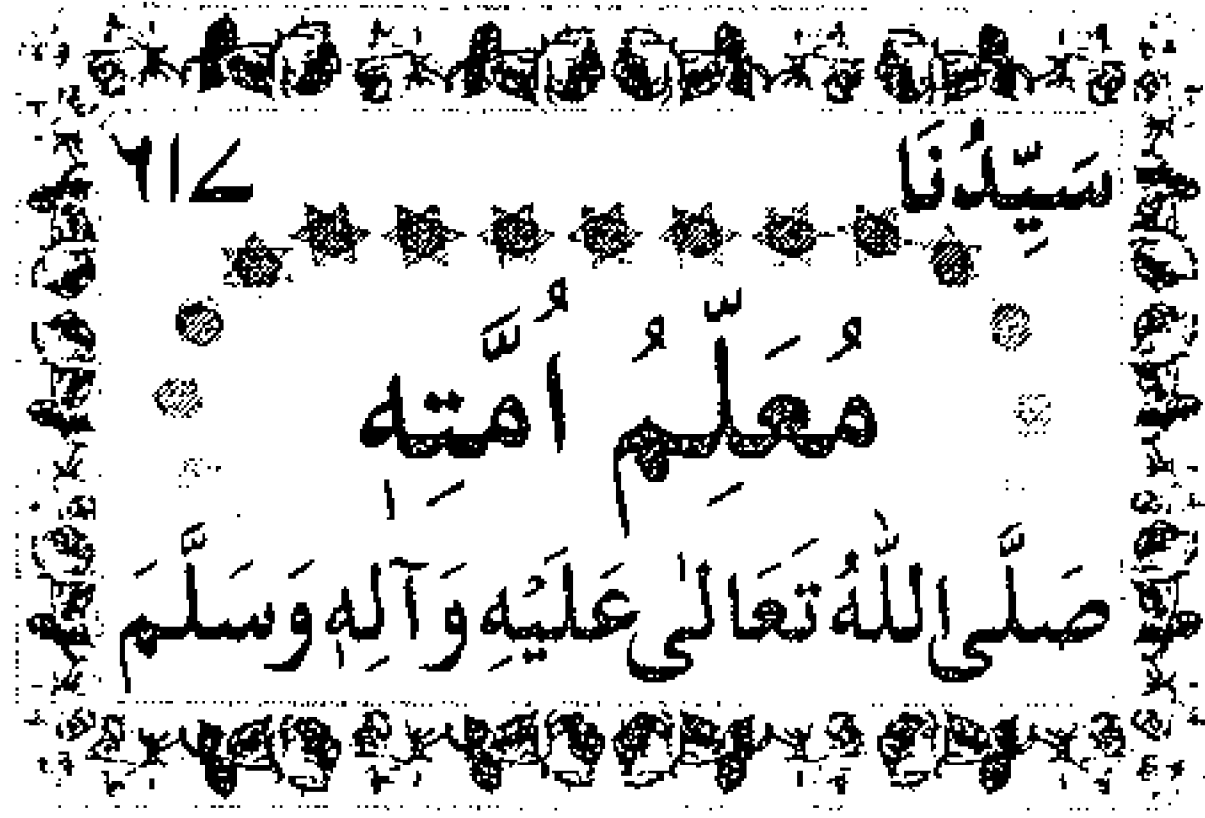 سَيِّدُنَا ٦١٧
مُعَلِّمُ أُمَّتِهٖ
صَلَّى اللّٰهُ تَعَالٰى عَلَيْهِ وَآلِهٖ وَسَلَّمَ